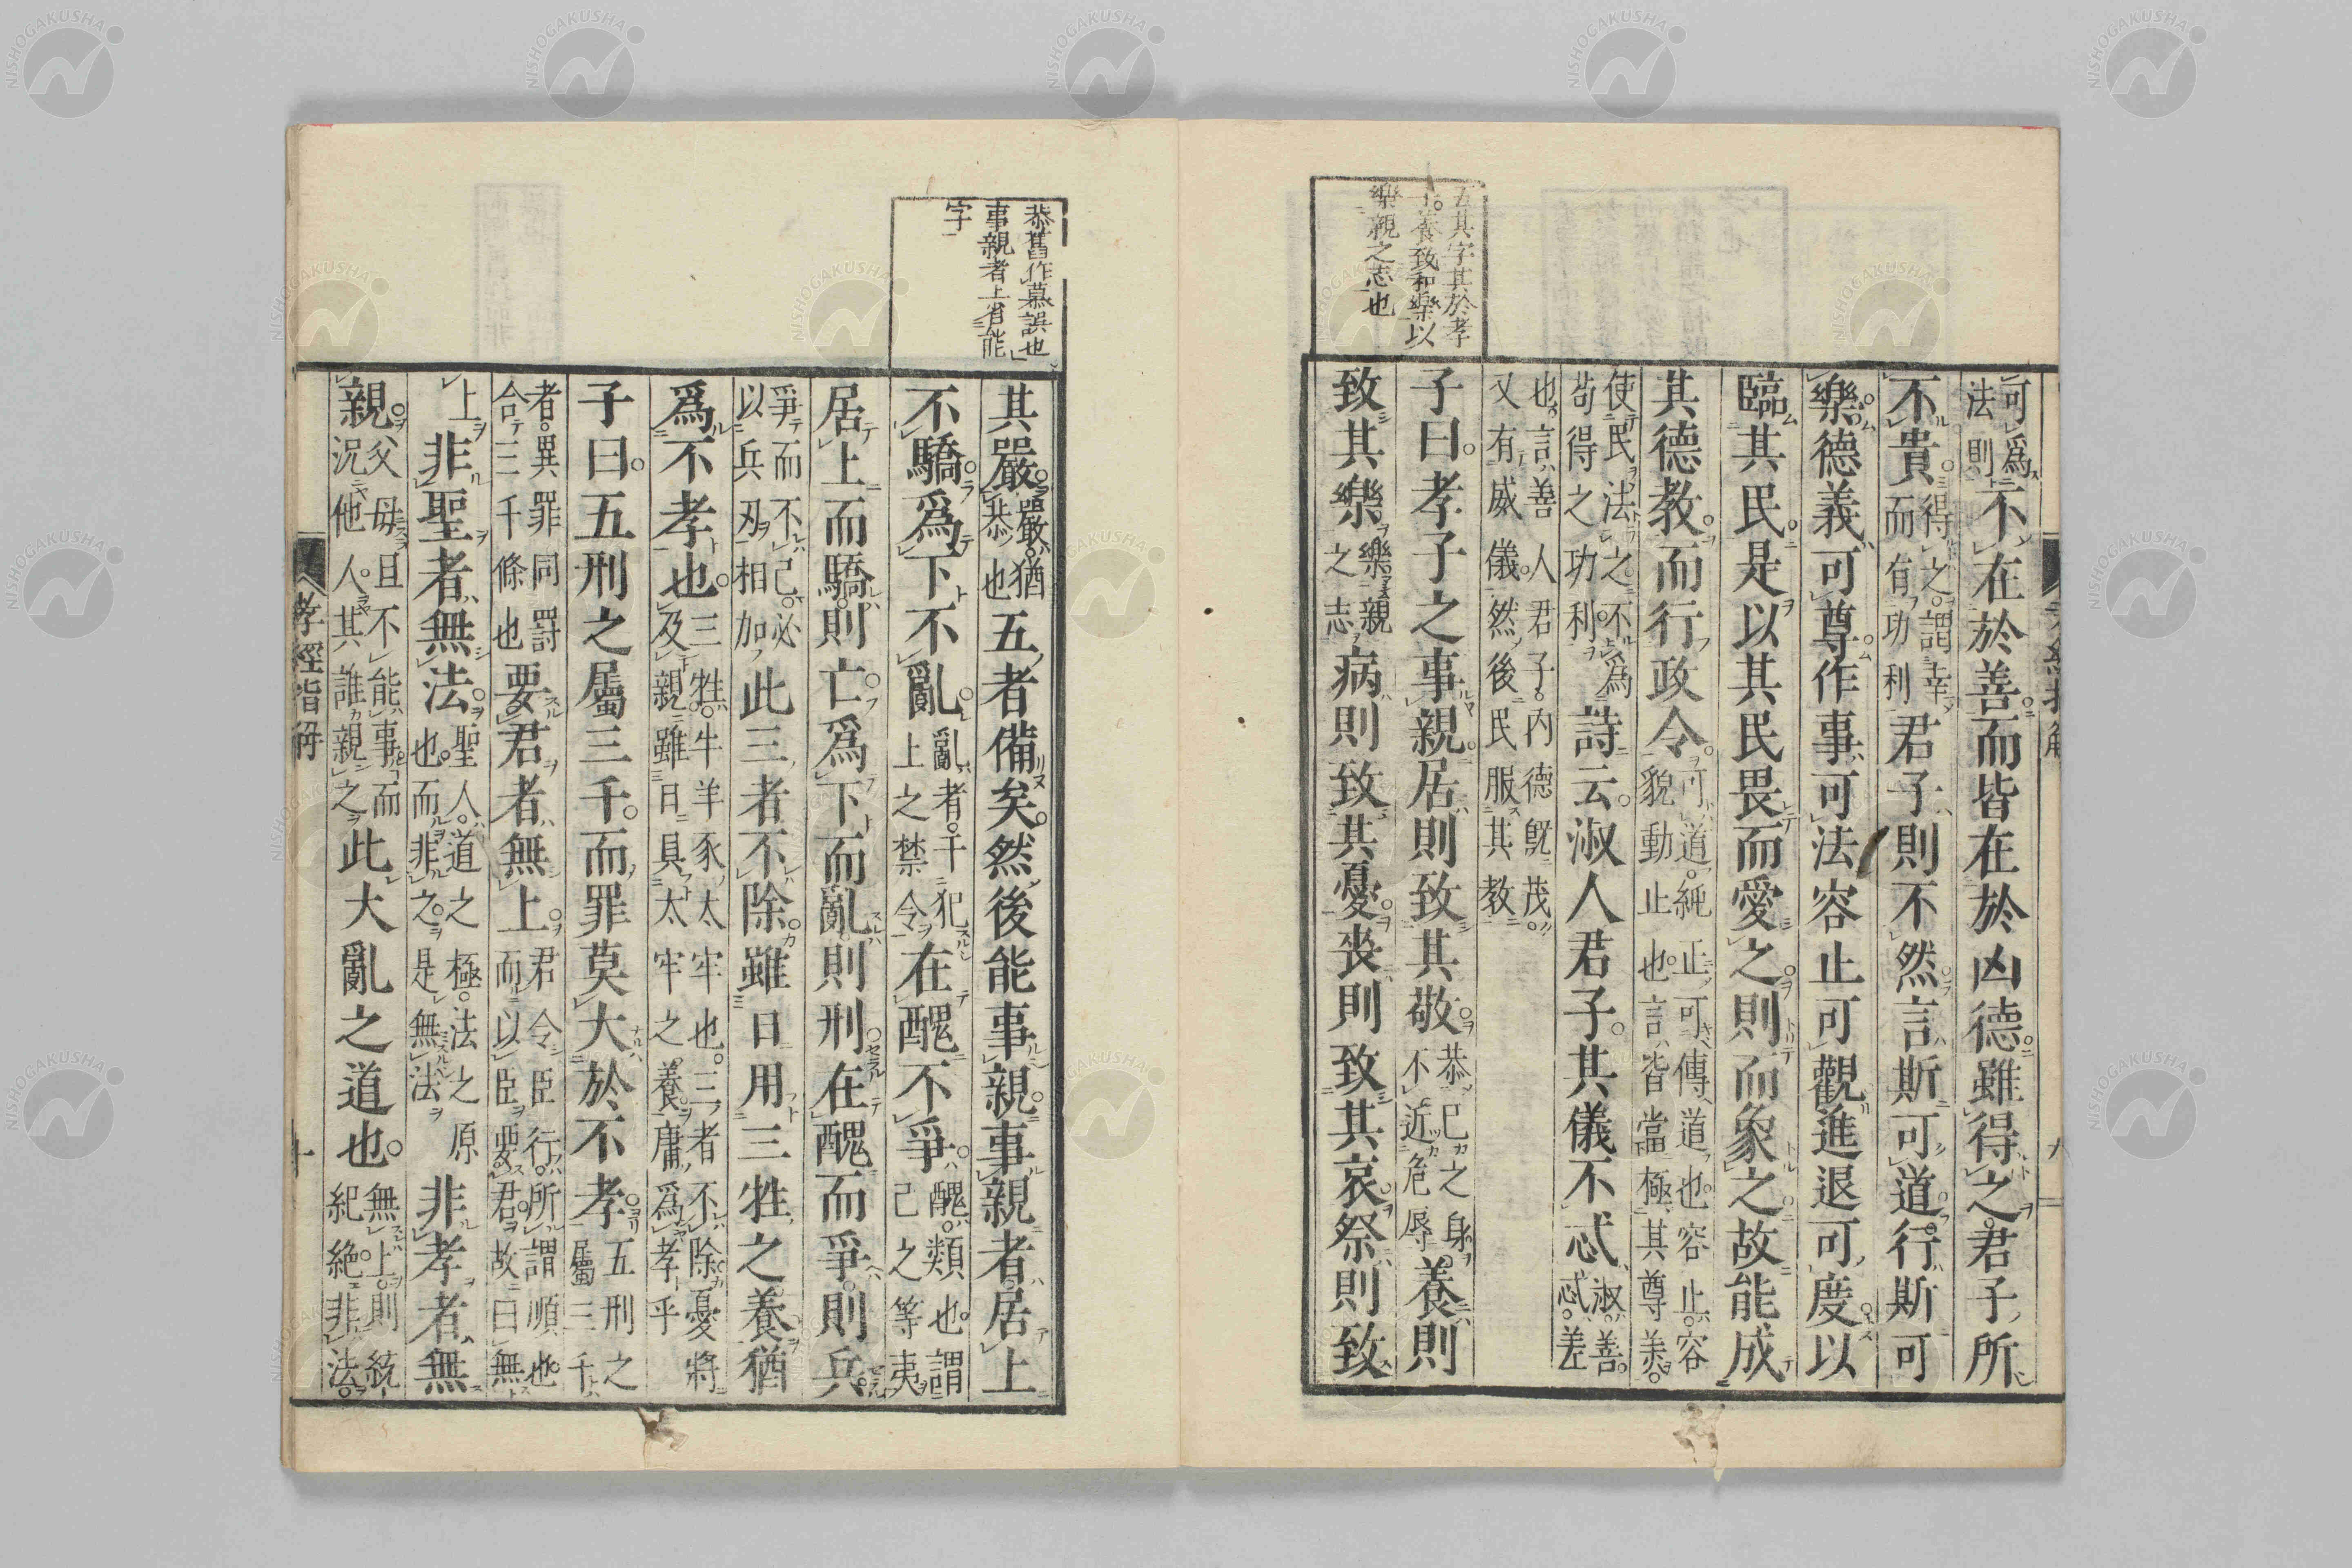 五其字其於孝
子養致和樂以
樂親之志也
可爲法則不在於善而皆在於凶德雖得之君子所
不貴得之謂幸而有功利君子則不然言斯可道行斯可
樂德義可尊作事可法容止可觀進退可度以
臨其民是以其民畏而愛之則而象之故能成
其德教而行政令可道純正可傳道也容止容貌動止也言皆當極其尊美
使民法之不爲苟得之功利詩云淑人君子其儀不忒淑善忒差
也言善人君子内德既茂又有威儀然後民服其教
子曰孝子之事親居則致其敬恭己之身不近危辱養則
致其樂樂親之志病則致其憂喪則致其哀祭則致
九
恭舊作慕誤也
事親者上省能
字
其嚴嚴猶恭也五者備矣然後能事親事親者居上
不驕爲下不亂亂者干犯上之禁令在醜不爭醜類也謂己之等夷
居上而驕則亡爲下而亂則刑在醜而爭則兵
爭而不己必以兵刃相加此三者不除雖日用三牲之養猶
爲不孝也三牲牛羊豕太牢也三者不除憂將及親雖日具太牢之養庸爲孝乎
子曰五刑之屬三千而罪莫大於不孝五刑之屬三千
者異罪同罰合三千條也要君者無上君令臣行所謂順也而以臣要君故曰無
上非聖者無法聖人道之極法之原也而非之是無法非孝者無
親父母且不能事而況他人其誰親之此大亂之道也無上則統紀絶非法
孝經指解
十
NISHOGAKUSHA